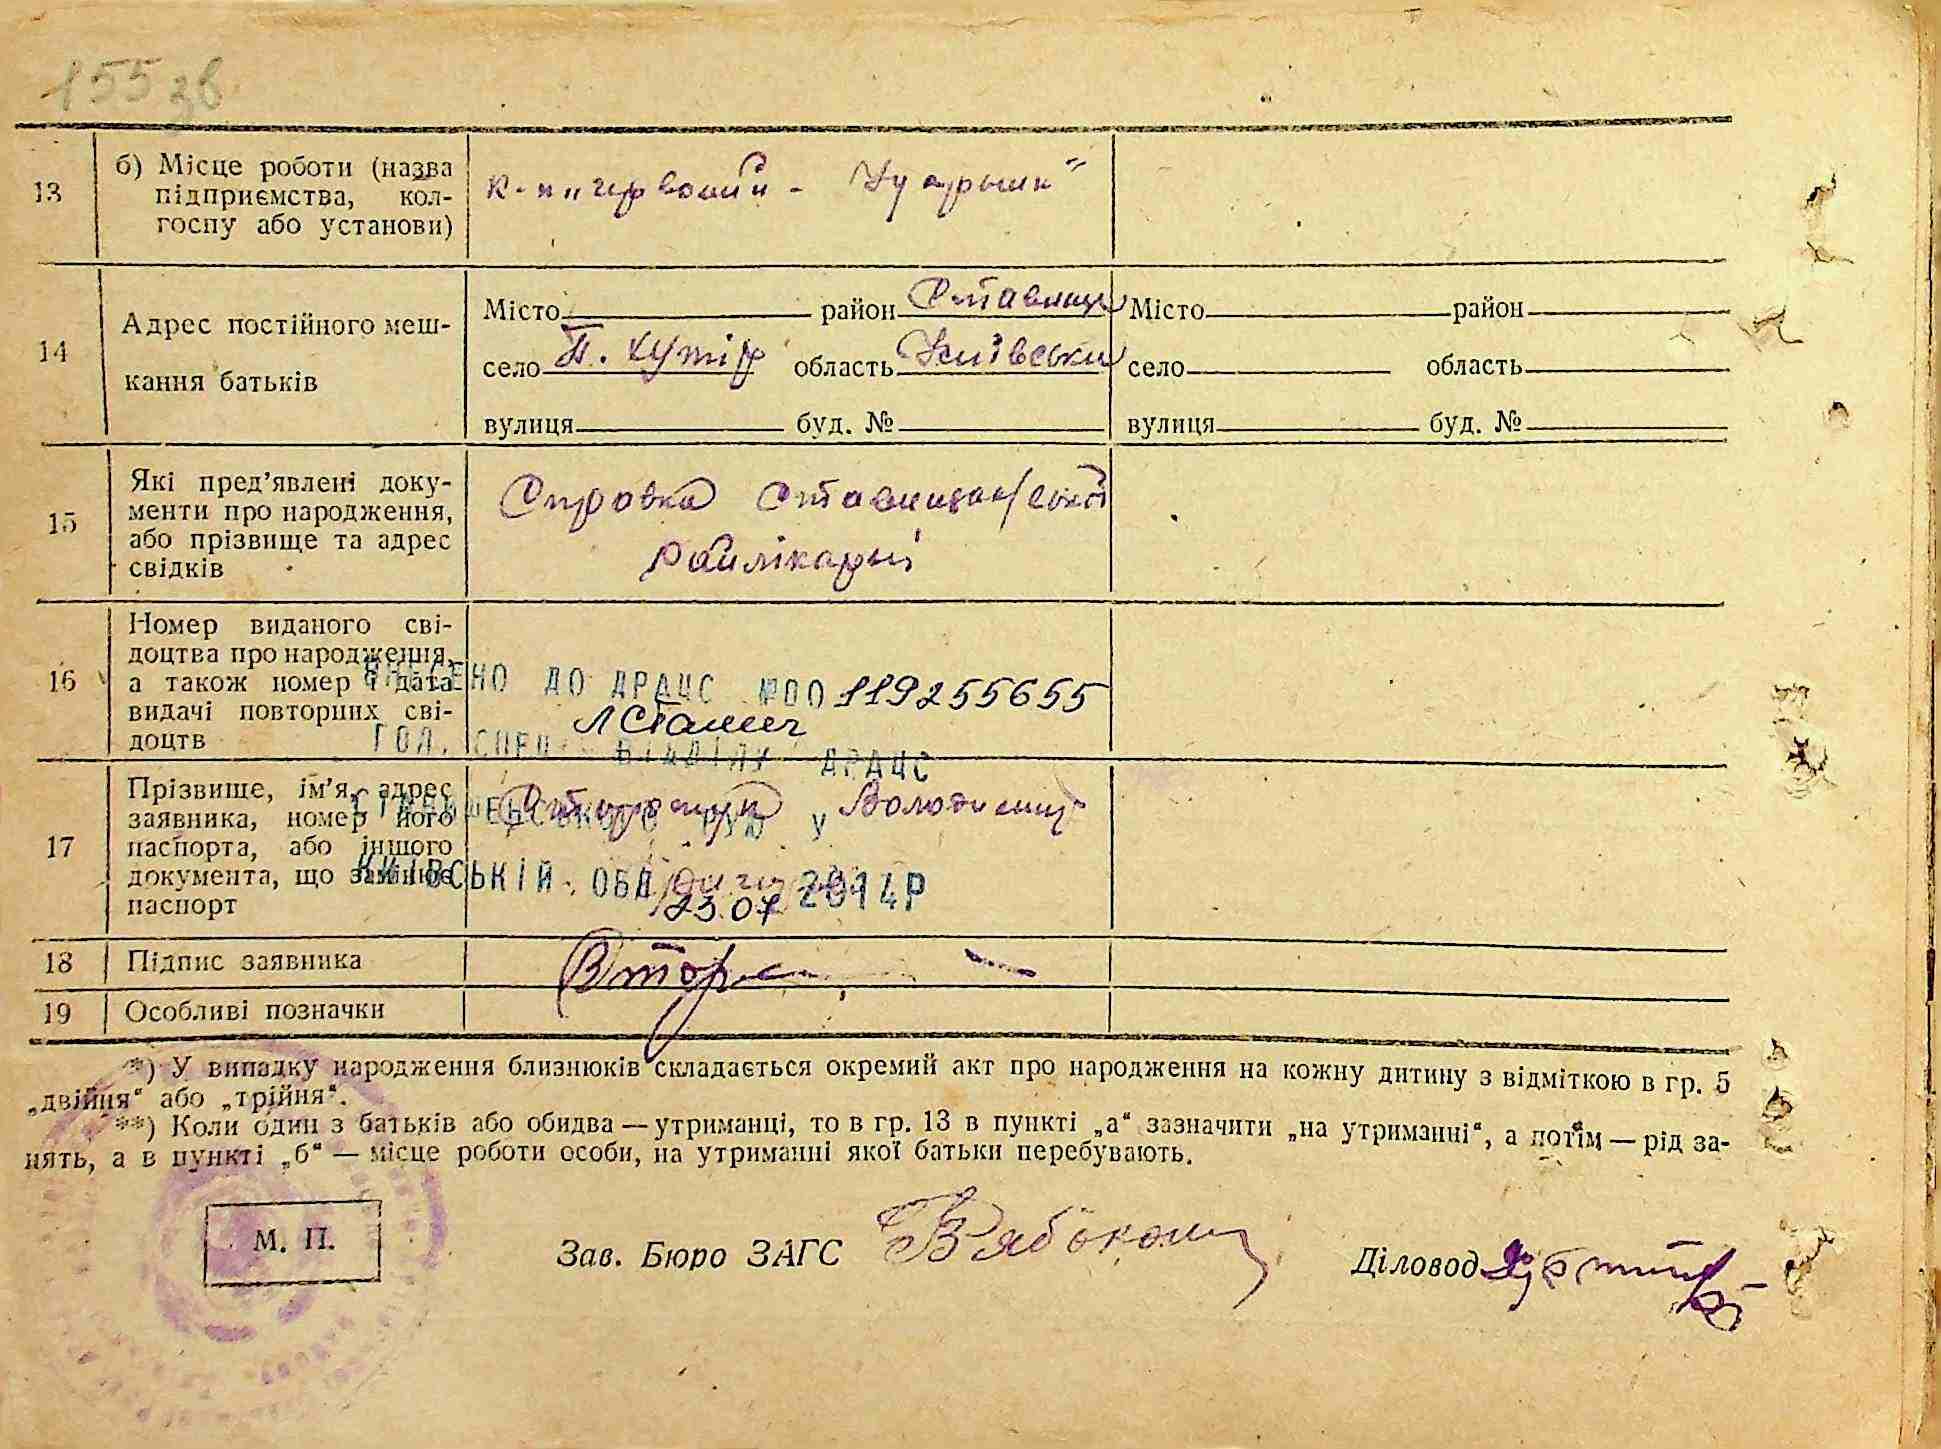 155 зв
13 б) Місце роботи (назва
підприємства, кол-
госпу або установи)
к-п „червоний
14 Адрес постійного меш-
кання батьків
Місто район Ставище Місто район
село П. хутір область Київська село область
вулиця буд. № вулиця буд. №
15 Які пред'явлені доку-
менти про народження,
або прізвище та адрес
свідків
Справка Ставищанської
райлікарні
16 Номер виданого сві-
доцтва про народження,
а також номер і дата
видачі повторних сві-
доцтв
ВНЕСЕНО ДО ДРАЦС №00119255655
ГОЛ. СПЕЦ. ВІДДІЛУ ДРАЦС
17 Прізвище, ім'я, адрес
заявника, номер його
паспорта, або іншого
документа, що замінює
паспорт
Володимир
СТАВИЩЕНСЬКОГО РУЮ У
КИЇВСЬКІЙ ОБЛ 23.07 2014Р
18 Підпис заявника
19 Особливі позначки
*) У випадку народження близнюків складається окремий акт про народження на кожну дитину з відміткою в гр. 5
„двійня“ або „трійня“.
**) Коли один з батьків або обидва — утриманці, то в гр. 13 в пункті „а“ зазначити „на утриманні“, а потім — рід за-
нять, а в пункті „б“ — місце роботи особи, на утриманні якої батьки перебувають.
М. П.
Зав. Бюро ЗАГС Діловод